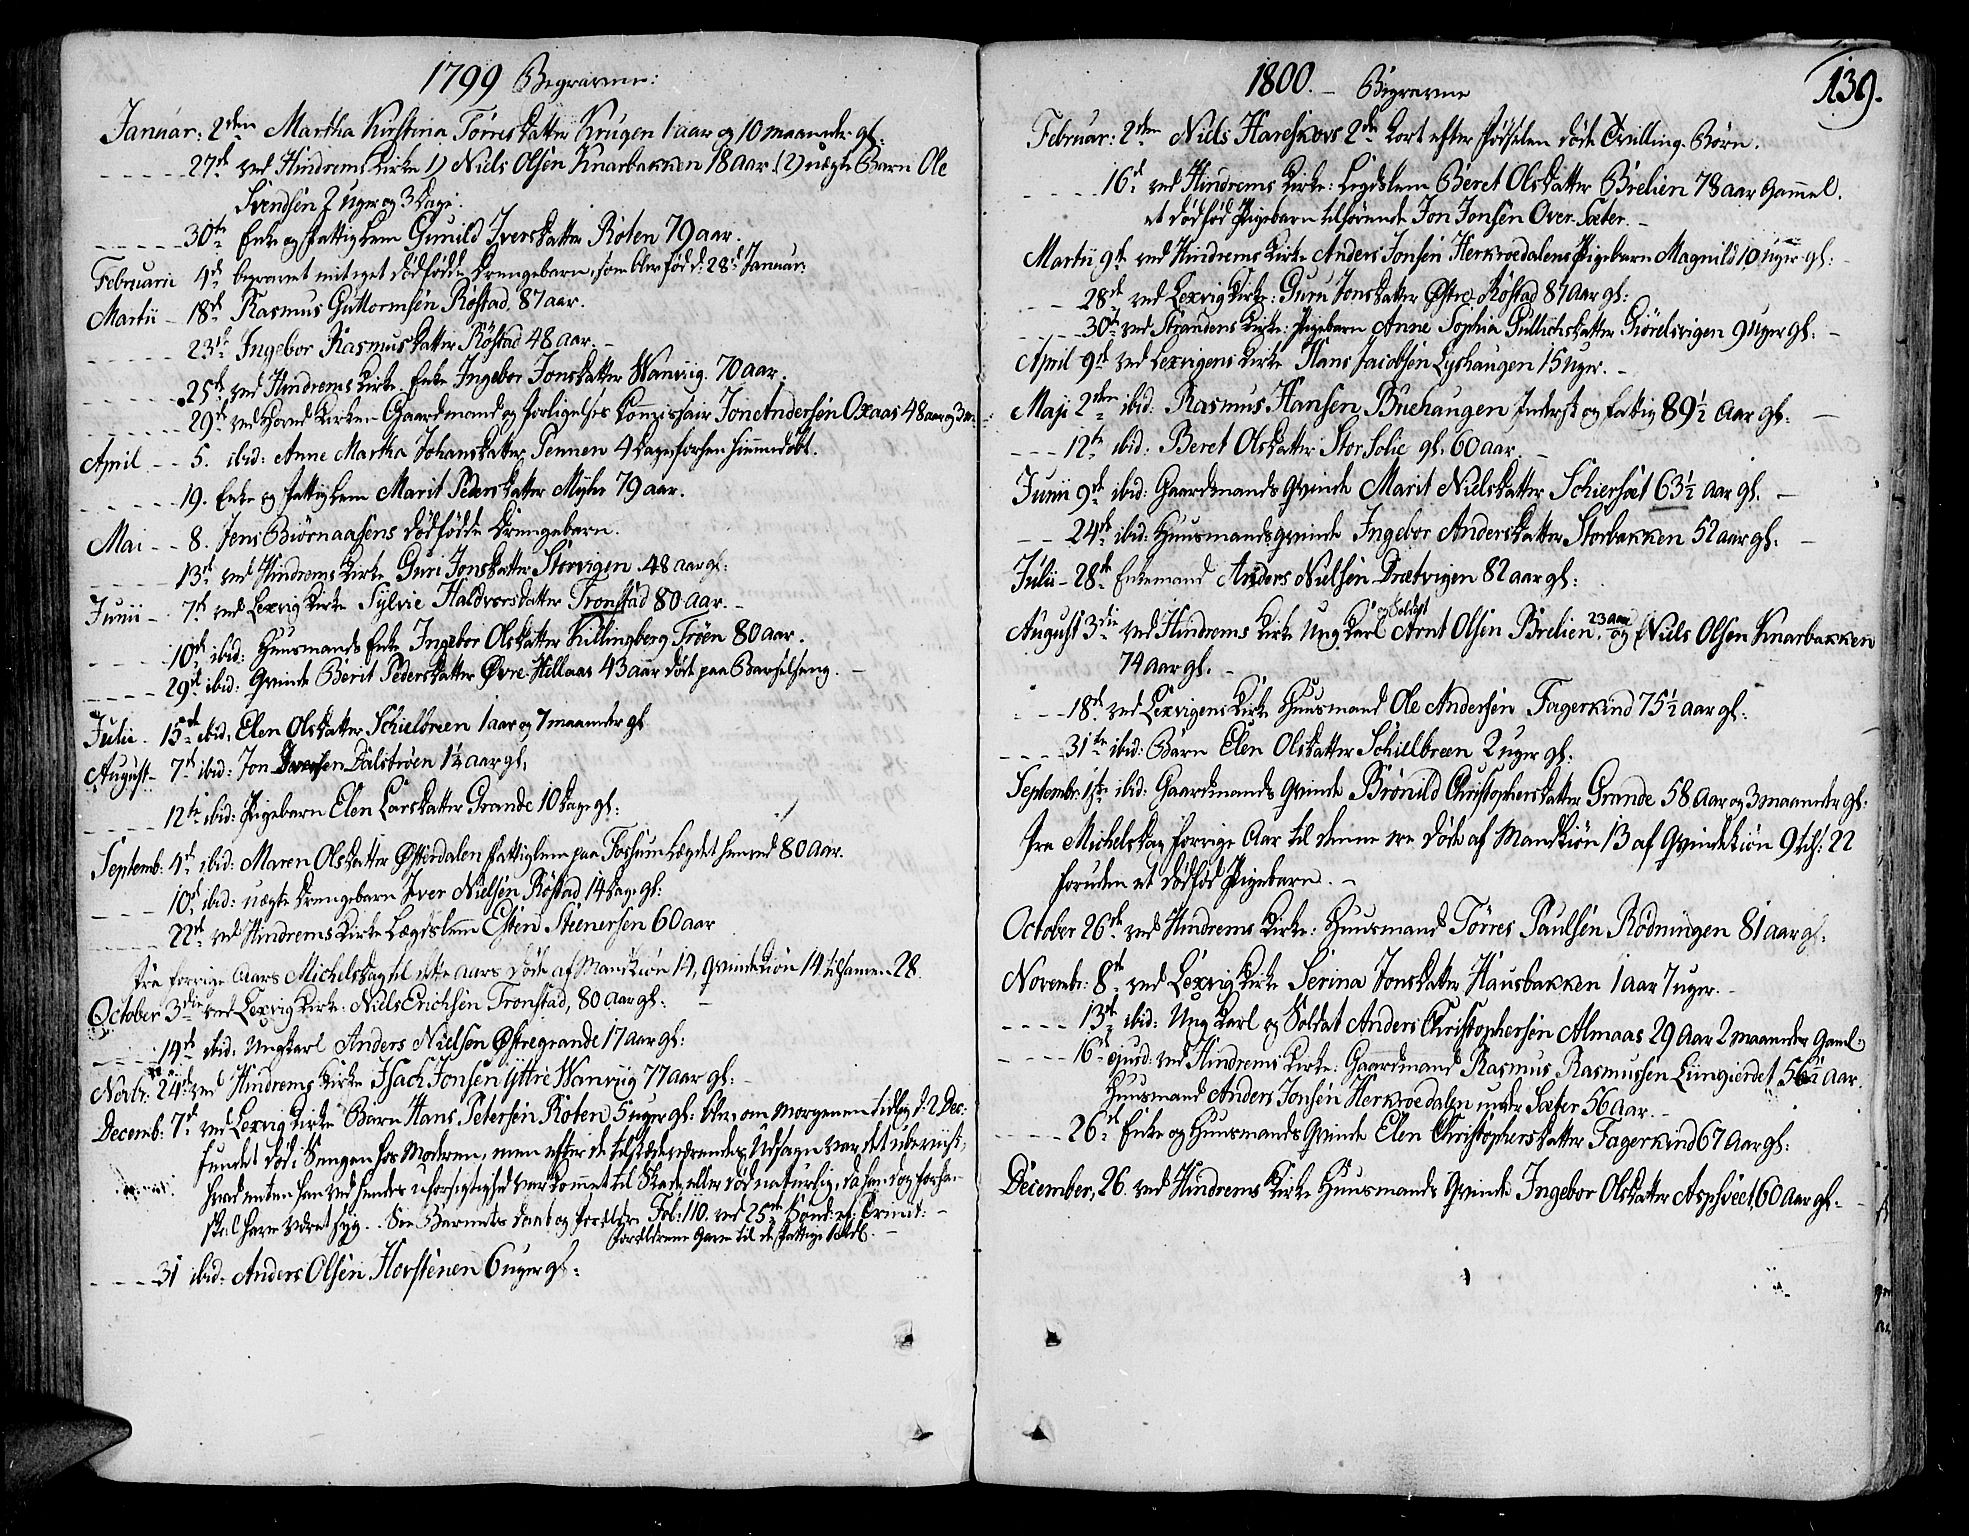 1799 Begravne:
Januar: 2den Martha Kirstina Torresdatter Krugen 1 aar og 10 maaneder gl:
27de ved Hindrems Kirke 1) Niels Olsen Knarbakken 18 aar. (2) uægte Barn Ole
Svendsen 2 uger og 3 Dage.
30te Enke og fattiglem Gunild Iversdatter Roten 79 aar.
Februarii 4de begravet mit eget dødfødde Drengebarn, som blev fød d: 28de Januar:
Martii - 18de Rasmus Guttormsen Röstad, 87 aar.
23de Ingebor Rasmusdatter Röstad 48 aar. -
25de ved Hindrems Kirke Enke Ingebor Jonsdatter Wanviig. 70 aar.
29de ved Hoved Kirken Gaardmand og Forligelses Commissair Jon Andersen Oxaas 48 aar og 3 m:
April - - 5. ibid: Anne Martha Johansdatter Tennen 4 Dage forhen hiemmedöbt.
19. Enke og fattiglem Marit Pedersdatter Myhr 79 aar.
Mai - - 8. Jens Biörnaasens dödfödde Drengebarn.
13de ved Hindrems Kirke Guri Jonsdatter Storvigen 48 aar gl:
Junii - 7de ved Lexvig Kirke Sylvie Haldvorsdatter Tronstad 80 aar. -
10de ibid: Huusmands Enke Ingebor Olsdatter Killingberg Tröen 80 aar.
29de ibid: Qvinde Berit Pedersdatter Øvre Hellaas 43 aar döde paa Barselseng. -
Julii - 15de ibid: Elen Olsdatter Schielbreen 1 aar og 7 maaneder gl
August - 7de ibid: Jon Iversen Dalströen 1½ aar gl,
12te ibid: Pigebarn Elen Larsdatter Grande 10 Dage gl:
Septemb: 4de ibid: Maren Olsdatter Østerdalen fattiglem paa Fossum Lægdet henved 80 aar.
10de ibid: uægte Drengebarn Iver Nielsen Röstad 14 Dage gl:
22de ved Hindrems Kirke Lægdslem Esten Steenersen 60 aar
Fra forrige Aars Michelsdag til dette aars döde af Mandkiön 14, Qvindekiön 14 tilsamen 28.
October 3die ved Lexvig Kirke: Niels Erichsen Tronstad, 80 aar gl: -
14de ibid: Ungkarl Anders Nielsen Østregrande 17 aar gl:
Novbr: 24de ved Hindrems Kirke Isach Jonsen Yttre Wanviig 77 aar gl: -
Decemb: 7de ved Lexvig Kirke Barn Hans Petersen Roten 5 uger gl: blev om Morgenen tidlig d: 2 Dec:
fundet död i Sengen hos Moderen, men efter de tilstedeværendes Udsagn var det ubeviist,
hvad enten han ved hendes uforsigtighed var kommet til Skade, eller död naturlig, da han dog forhen
skal have været syg. - See Barnets daab og forældre Fol: 110. ved 25de Sönd: ef: Trinit: -
Forældrene gave til de fattige 1 Rdl. -
31 ibid: Anders Olsen Horstenen 6 uger gl:
1800. - Begravne
139.
Februar: 2den Niels Hareskovs 2de kort efter Födselen döde Tvilling-Börn.
16de ved Hindrems Kirke: Legdslem Beret Olsdatter Brelien 78 aar gammel.
et dödfød Pigebarn tilhörende Jon Jonsen Over-Sæter. -
Martii 9de ved Hindrems Kirke Anders Jonsen Herkroedalens Pigebarn Magnild 10 uger gl: -
28de ved Lexvig Kirke: Guru Jonsdatter Østre Röstad 87 aar gl:
30te ved Strandens Kirke: Pigebarn Anne Sophia Gullichsdatter Giörelvigen 9 uger gl: -
April 9de ved Lexvigens Kirke Hans Jacobsen Lyshaugen 15 uger. -
Maji 2den ibid: Rasmus Hansen Bruehaugen Inderst og fattig 89½ aar gl: -
12te ibid: Beret Olsdatter Stor Solie gl: 60 aar. -
Junii 9de ibid: Gaardmands Qvinde Marit Nielsdatter Schierset 63½ aar gl. -
24de ibid: Huusmands qvinde Ingebor Andersdatter Storbakken 52 aar gl. -
Julii - 28de Enkemand Anders Nielsen Drætvigen 82 aar gl:
August 3die ved Hindrems Kirke Ung Karl og Soldat Arnt Olsen Brelien 23 aar og (Niels Olsen Knarbakken
74 aar gl. -
18de ved Lexvigens Kirke Huusmand Ole Andersen Fagerkind 75½ aar gl:
31te ibid: Barn Elen Olsdatter Schielbreen 2 uger gl:
Septembr: 1ste ibid: Gaardmands Qvinde Brönild Christophersdatter Grande 58 aar og 3 maaneder gl:
Fra Michelsdag forrige Aar til denne ere döde af Mandkiön 13 af Qvindekiön 9 tils: 22
foruden et dödföd Pigebarn. -
October 26de ved Hindrems Kirke: Huusmand Törres Paulsen Rödningen 81 aar gl:
Novembr: 8de ved Lexvig Kirke Serina Jonsdatter Hausbakken 1 aar 7 uger. -
13de ibid: Ung Karl og Soldat Anders Christophersen Almaas 29 aar 2 maaneder gaml:
16de ejusd: ved Hindrems Kirke: Gaardmand Rasmus Rasmussen Liungierdet 56½ aar.
Huusmand Anders Jonsen Herkroedalen under Sæter 56 aar. -
26de Enke og Huusmands Qvinde Elen Christophersdatter Fagerkind 67 aar gl:
December, 26. ved Hindrems Kirke Huusmands Qvinde Ingebor Olsdatter Asphveet, 60 aar gl. -